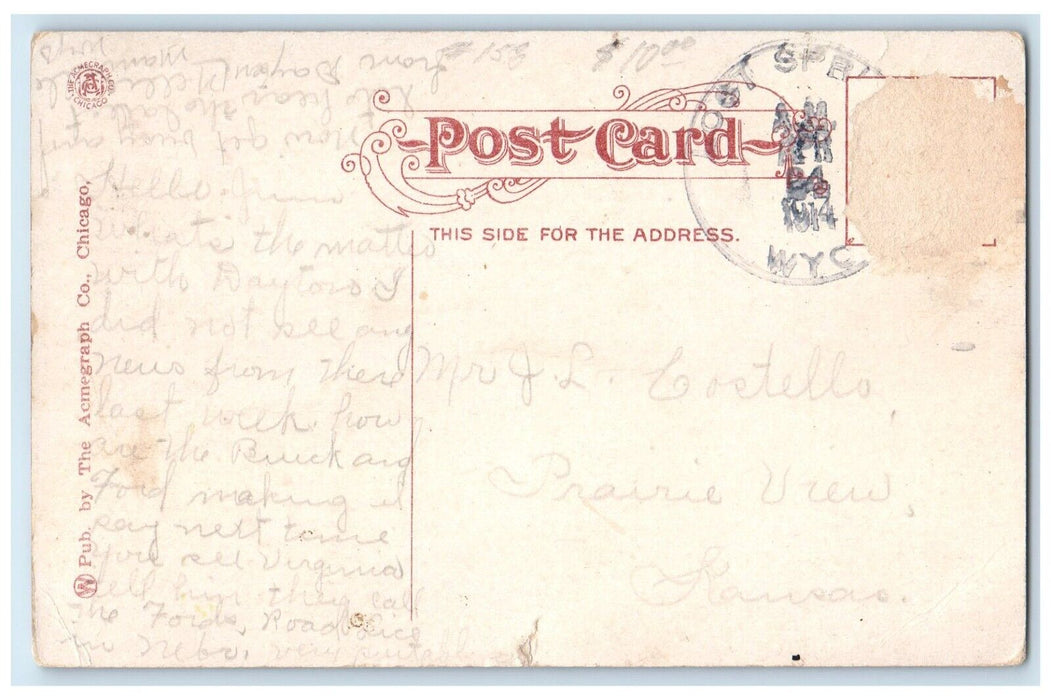 THE ACMEGRAPH CO.
CHICAGO
# 153 $ 10.00
Post Card
THIS SIDE FOR THE ADDRESS.
OST SPR
1914
WYO
Pub. by The Acmegraph Co., Chicago,
W
Hello
whats the matter
with Dayton I
did not see any
news from there
last week how
are the Buick and
Ford making it
say next time
you see Virginia
tell him they call
the Fords, Road Lice
in Nebr. very
Mr J. L. Costello,
Prairie View,
Kansas.
Now get busy and
let's hear the
from Dayton